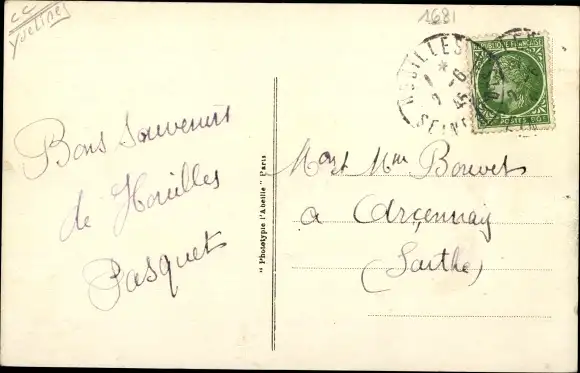 cc
Yvelines
1681
HOUILLES
SEINE
REPUBLIQUE FRANÇAISE
POSTES
Bons Souvenirs
de Houilles
Pasquet
"Phototypie l'Abeille" Paris
Mr et Mme Bouvet
a Arçennay
(Sarthe)